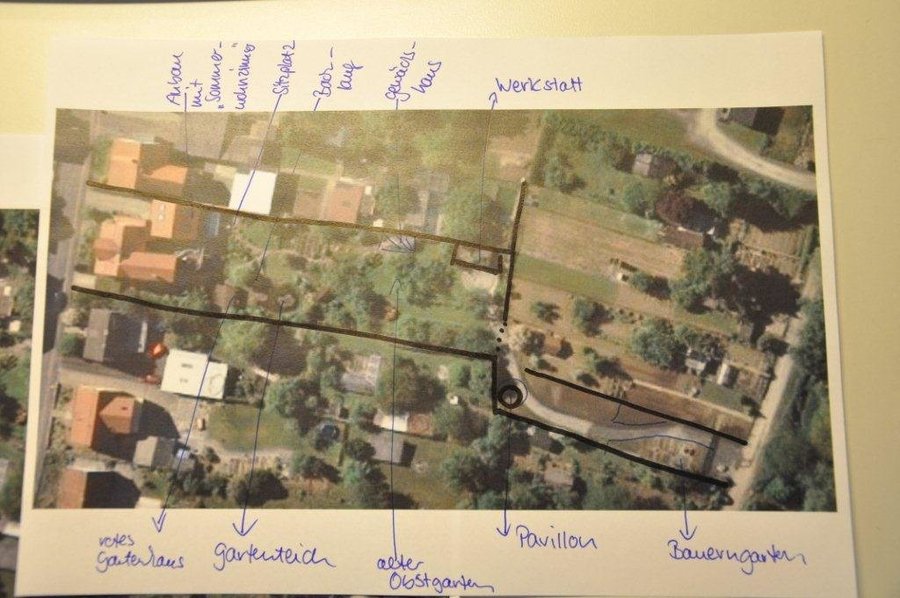 Anbau
mit
"Sommer-
wohnzimmer"
Sitzplatz
Bach-
lauf
gewächs-
haus
Werkstatt
rotes
Gartenhaus
Gartenteich
alter
Obstgarten
Pavillon
Bauerngarten